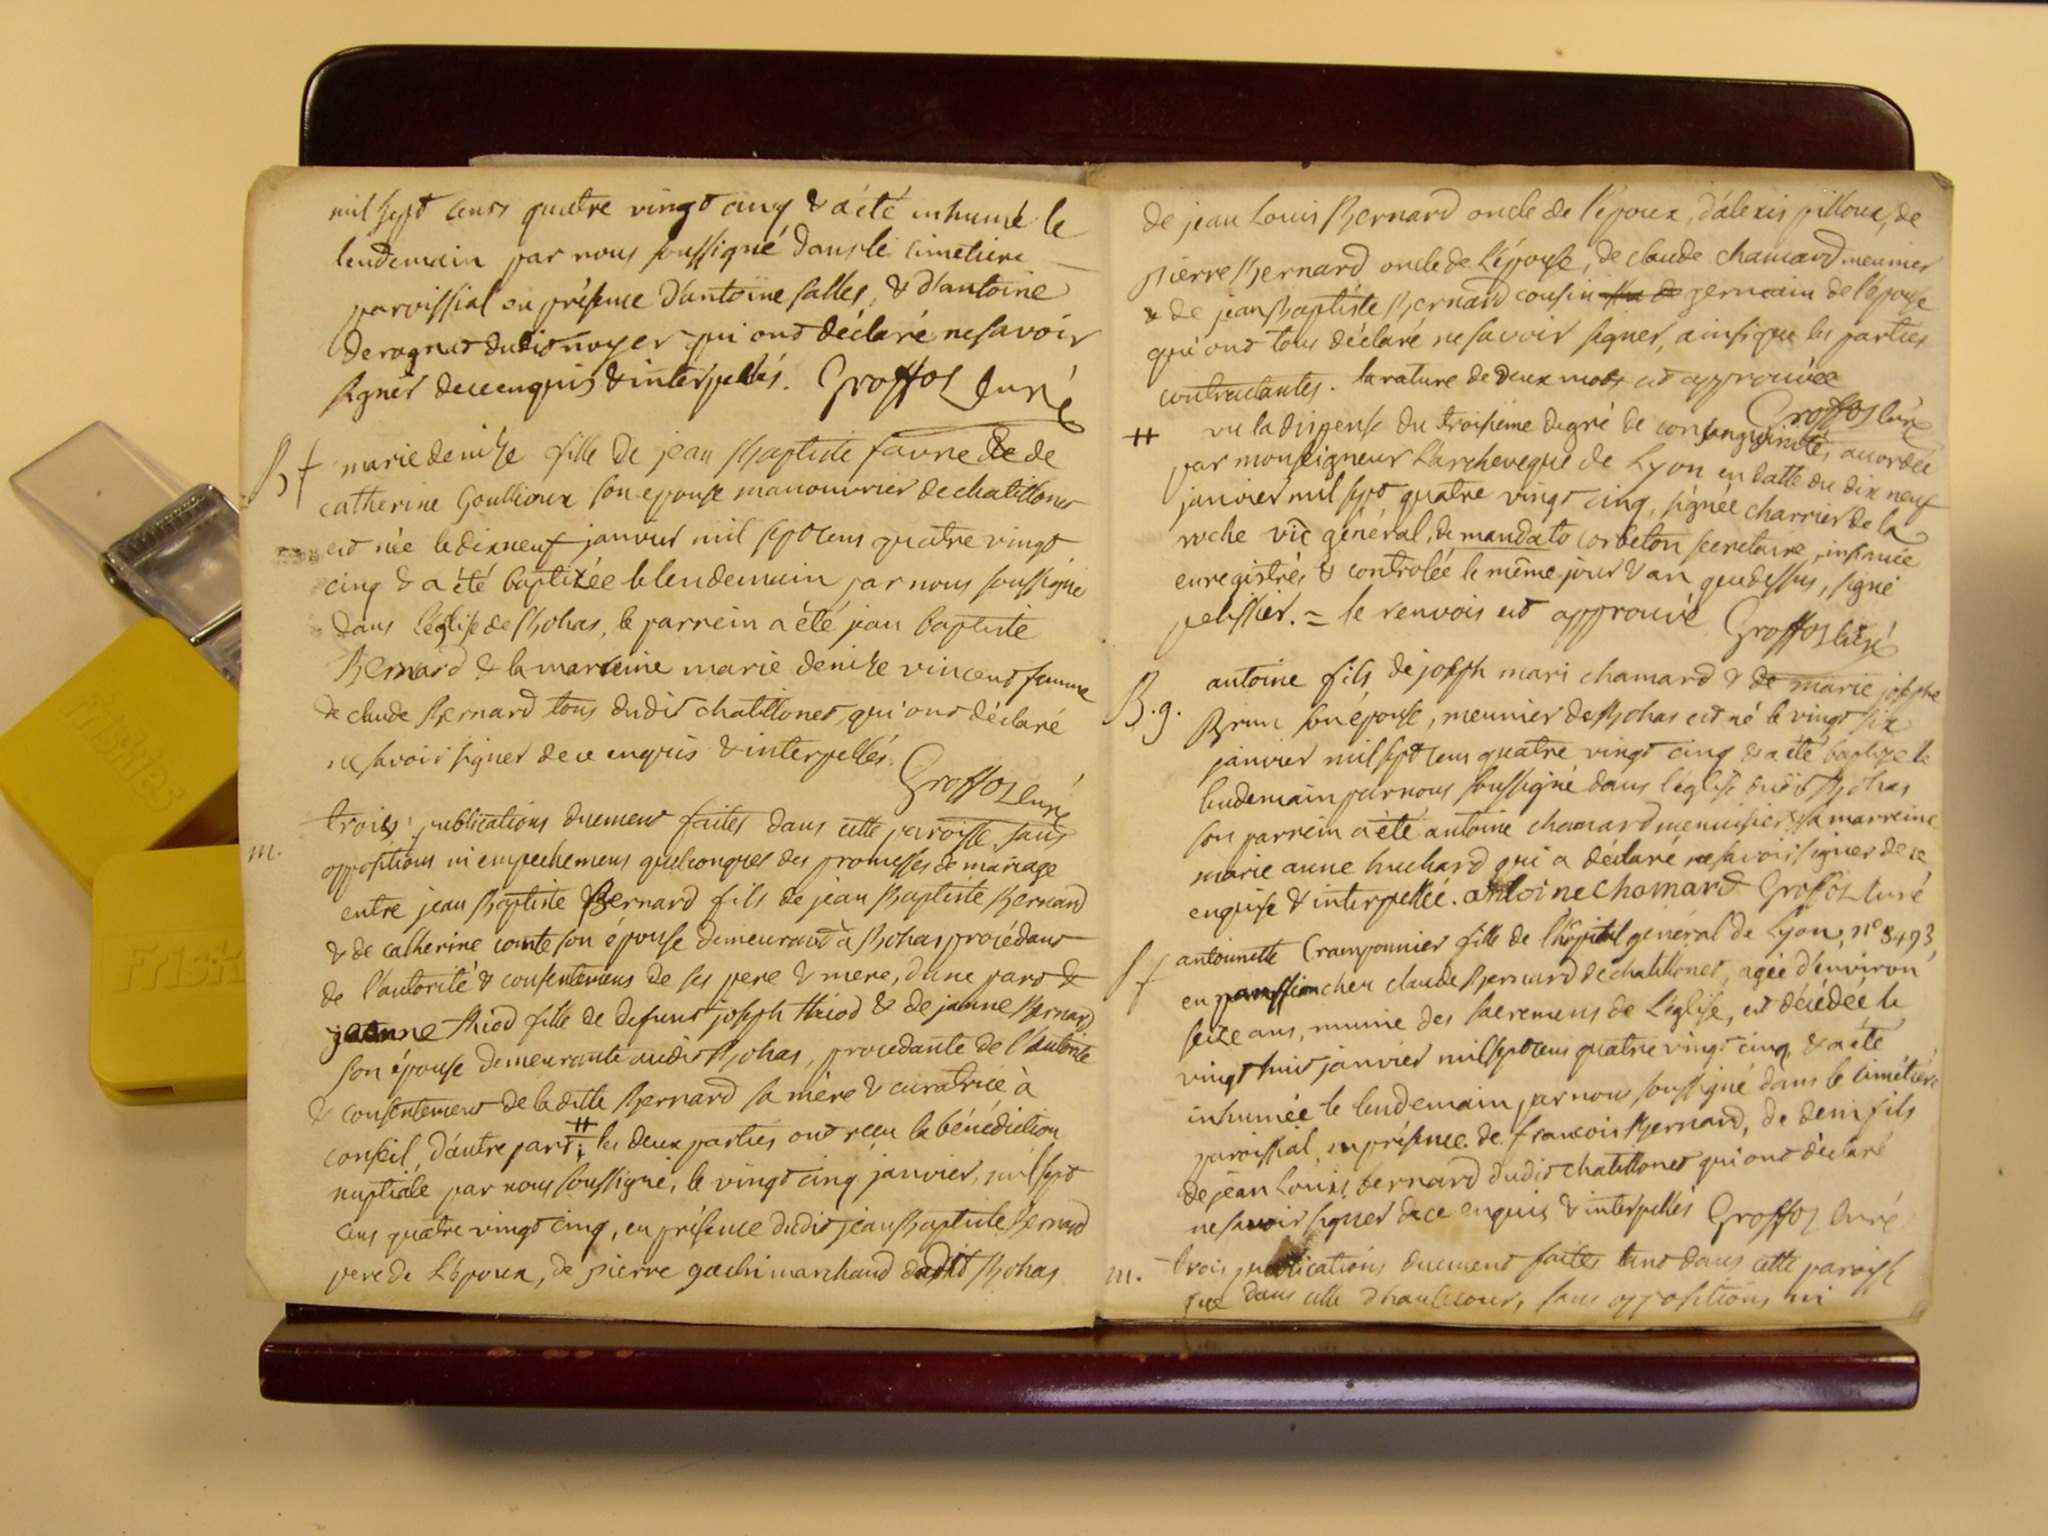 mil sept cents quatre vingt cinq & a été inhumé le
lendemain par nous soussigné dans le cimetiere
paroissial en présence d'antoine salles, & d'antoine
derognat dudit noyer qui ont déclaré ne savoir
signer de ce enquis & interpellés. Groffoz Curé
B f marie denise fille de jean Baptiste favre & de
catherine Goullioux son epouse manouvrier de chatillonet
est née le dix neuf janvier mil sept cens quatre vingt
cinq & a été baptizée le lendemain par nous soussigné
dans l'église de Bohas, le parrein a été jean baptiste
Bernard & la marreine marie denise vincent femme
de claude Bernard tous dudit chatillonet, qui ont déclaré
ne savoir signer de ce enquis & interpellés.
Groffoz Curé
m. trois publications duement faites dans cette paroisse, sans
oppositions ni empechemens quelconques des promesses de mariage
entre jean Baptiste Bernard fils de jean Baptiste Bernard
& de catherine comte son épouse demeurant à Bohas procédant
de l'autorité & consentemens de ses pere & mere, d'une part &
jeanne thiod fille de defunt joseph thiod & de jeanne Bernard
son épouse demeurante audit Bohas, procedante de l'autorité
& consentement de la ditte Bernard sa mère & curatrice à
conseil, d'autre part; # les deux parties ont reçu la bénédiction
nuptiale par nous soussigné, le vingt cinq janvier, mil sept
cens quatre vingt cinq, en présence dudit jean Baptiste Bernard
pere de l'époux, de pierre gochi marchand dudit Bohas
de jean Louis Bernard oncle de l'époux, d'alexis pilloux, de
pierre Bernard oncle de l'épouse, de claude chamard meunier
& de jean Baptiste Bernard cousin germain de l'épouse
qui ont tous déclaré ne savoir signer, ainsi que les parties
contractantes. la rature de deux mots est approuvée
Groffoz Curé
# vu la dispense du troisieme degré de consanguinité, accordée
par monseigneur L'archeveque de Lyon en datte du dix neuf
janvier mil sept quatre vingt cinq, signée charrier de la
roche vic général, de mandato corbeton secretaire, insinuée
enregistrée & controlée le même jour & an que dessus, signé
pelissier. = le renvois est approuvé Groffoz Curé
B. g. antoine fils de joseph mari chamard & de marie josephe
Brun son épouse, meunier de Bohas est né le vingt six
janvier mil sept cens quatre vingt cinq & a été baptizé le
lendemain par nous soussigné dans l'église dudit Bohas
son parrein a été antoine chamard menuisier & sa marreine
marie anne huchard qui a déclaré ne savoir signer de ce
enquise & interpellée. antoine chamard Groffoz Curé
S f antoinette Cramponnier fille de l'hôpital général de Lyon, n° 8493,
en pension chez claude Bernard de chatillonet, agée d'environ
seize ans, munie des sacremens de L'église, est décédée le
vingt huit janvier mil sept cens quatre vingt cinq, & a été
inhumée le lendemain par nous soussigné dans le cimétière
paroissial, en présence de francois Bernard, de denis fils
de jean Louis bernard dudit chatillonet qui ont déclaré
ne savoir signer de ce enquis & interpellés Groffoz Curé
m. trois publications duement faites tant dans cette paroisse
que dans celle d'hautecour, sans oppositions ni
Frisk123
Frisk